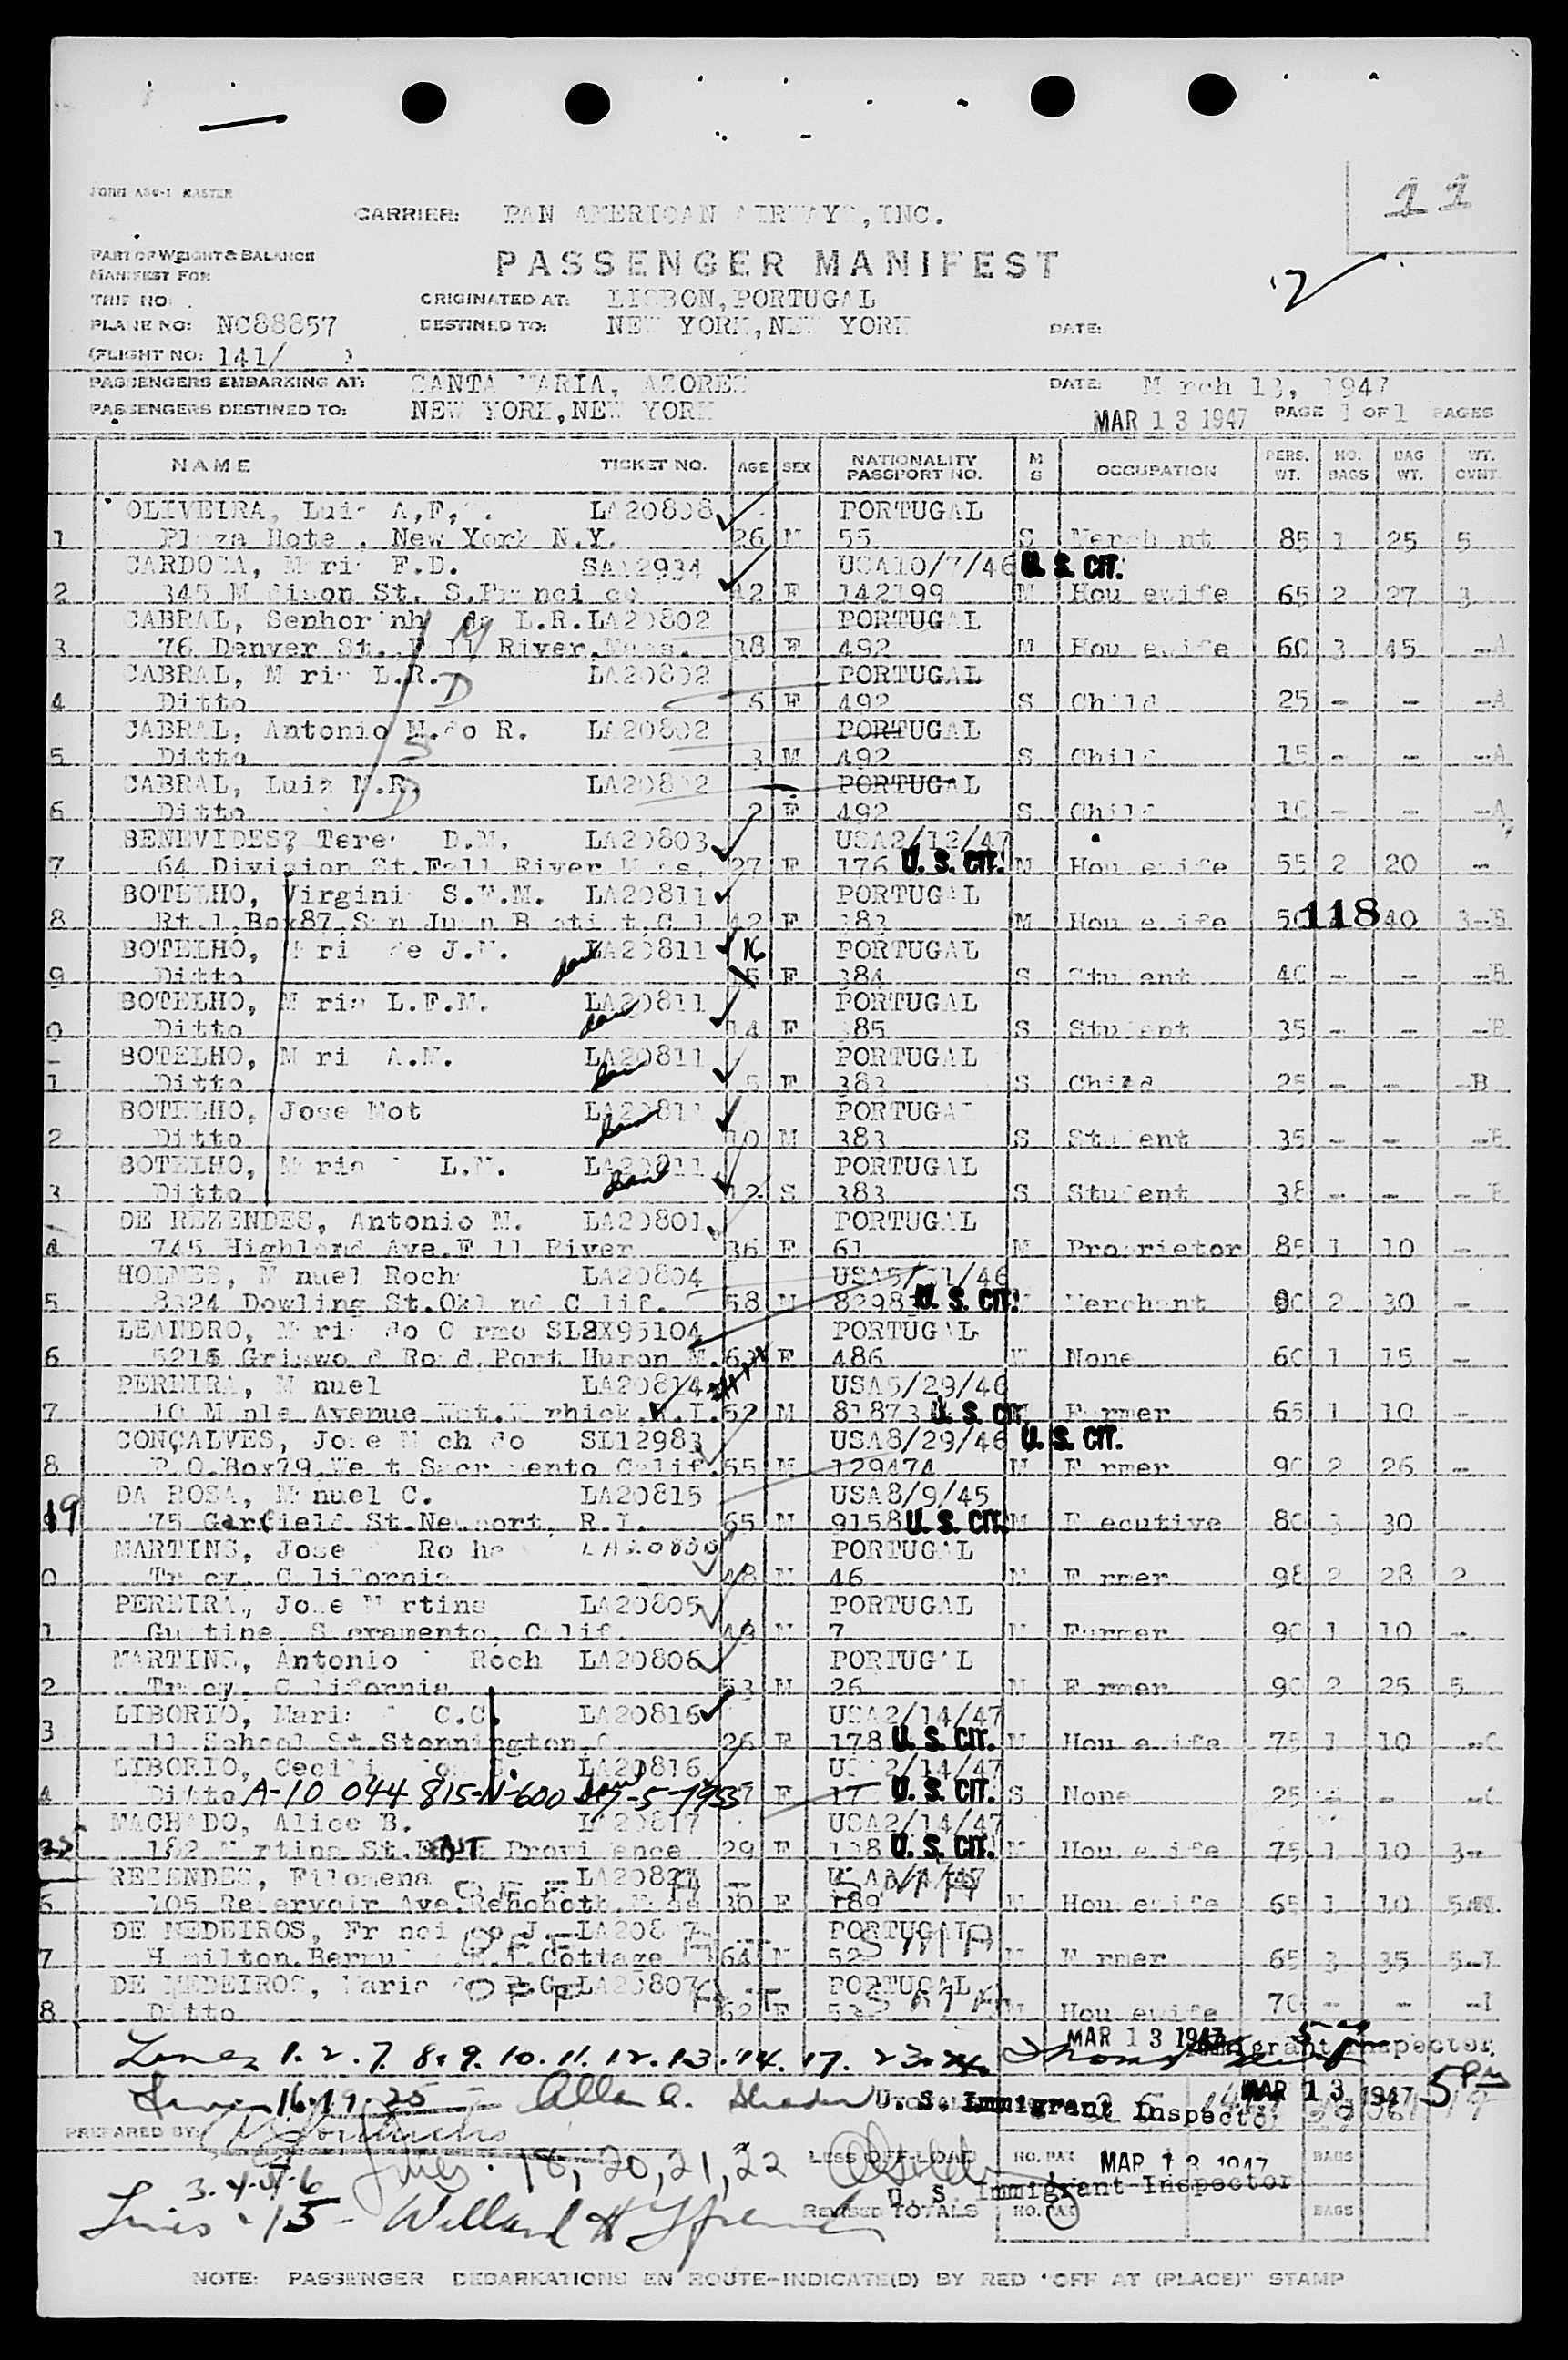 FORM ABU-1 MASTER
11
CARRIER: PAN AMERICAN AIRWAYS,INC.
PART OF WEIGHT & BALANCE
MANIFEST FOR
PASSENGER MANIFEST
2
TRIP NO:
ORIGINATED AT: LISBON,PORTUGAL
PLANE NO: NC88857
DESTINED TO: NEW YORK,NEW YORK
DATE:
(FLIGHT NO: 141/ )
PASSENGERS EMBARKING AT: SANTA MARIA, AZORES
DATE: March 13, 1947
PASSENGERS DESTINED TO: NEW YORK,NEW YORK
MAR 13 1947 PAGE 1 OF 1 PAGES
NAME TICKET NO. AGE SEX NATIONALITY PASSPORT NO. M S OCCUPATION PERS. WT. NO. BAGS BAG WT. WT. CVNT.
OLIVEIRA, Luis A,F, LA20808 PORTUGAL
1 Plaza Hotel, New York N.Y. 26 M 55 S Merchant 85 1 25 5
CARDOZA, Maria F.D. SA12934 USA10/7/46 U. S. CIT.
2 345 Madison St. S.Francisco 42 F 142199 M Housewife 65 2 27 3
CABRAL, Senhorinha da L.R.LA20802 PORTUGAL
3 76 Denver St. Fall River.Mass. 38 F 492 M Housewife 60 3 45 -A
CABRAL, Maria L.R. LA20802 PORTUGAL
4 Ditto 6 F 492 S Child 25 - - -A
CABRAL, Antonio M.do R. LA20802 PORTUGAL
5 Ditto 3 M 492 S Child 15 - - -A
CABRAL, Luiz M.R. LA20802 PORTUGAL
6 Ditto 2 F 492 S Child 10 - - -A
BENEVIDES, Teresa D.M. LA20803 USA2/12/47
7 64 Division St.Fall River Mass. 27 F 176 U. S. CIT. M Housewife 55 2 20 -
BOTELHO, Virginia S.F.M. LA20811 PORTUGAL
8 Rt.1,Box87,San Juan Batista,Cal 42 F 383 M Housewife 50 118 40 3-B
BOTELHO, Maria de J.M. dau LA20811 16 PORTUGAL
9 Ditto 15 F 384 S Student 40 - - -B
BOTELHO, Maria L.F.M. LA20811 PORTUGAL
0 Ditto dau 14 F 385 S Student 35 - - -B
BOTELHO, Maria A.M. LA20811 PORTUGAL
1 Ditto 5 F 383 S Child 25 - - -B
BOTELHO, Jose Mot LA20811 PORTUGAL
2 Ditto 10 M 383 S Student 35 - - -B
BOTELHO, Maria L.M. LA20811 PORTUGAL
3 Ditto 12 S 383 S Student 38 - - -B
DE REZENDES, Antonio M. LA20801 PORTUGAL
4 745 Highland Ave.Fall River 36 F 61 M Proprietor 85 1 10 -
HOLMES, Manuel Rocha LA20804 USA5/ 1/46
5 8324 Dowling St.Okland Calif. 58 M 8298 U. S. CIT. Merchant 90 2 30 -
LEANDRO, Maria do Carmo SL2X95104 PORTUGAL
6 Griswood Road,Port Huron M. F 486 None 60 1 15 -
PEREIRA, Manuel LA20814 USA5/29/46
7 10 Maple Avenue R.I. 52 M 81873 U. S. CIT. Farmer 65 1 10 -
CONÇALVES, Jose Machado SL12983 USA8/29/46 U. S. CIT.
8 P.O.Box79,West Sacramento Calif. 55 M 129474 M Farmer 90 2 26 -
DA ROSA, Manuel C. LA20815 USA8/9/45
19 75 Garfield St.Newport, R.I. 65 M 9158 U. S. CIT. M Executive 80 3 30
MARTINS, Jose Rocha LA20830 PORTUGAL
0 Tracy, California 48 M 46 M Farmer 98 2 28 2
PEREIRA, Jose Martins LA20805 PORTUGAL
1 Gustine, Sacramento, Calif. 49 M 7 M Farmer 90 1 10 -
MARTINS, Antonio Roch LA20806 PORTUGAL
2 Tracy, California 53 M 26 M Farmer 90 2 25 5
LIBORIO, Maria C.C. LA20816 USA2/14/47
3 11 School St.Stonnington 26 F 178 U. S. CIT. M Housewife 75 1 10 -C
LIBORIO, Cecilia LA20816 USA2/14/47
4 Ditto A-10 044 815-N-600 7-5-1955 7 F 17 U. S. CIT. S None 25 - - -C
MACHADO, Alice B. LA20817 USA2/14/47
25 182 Martins St.East Providence 29 F 178 U. S. CIT. M Housewife 75 1 10 3-
REZENDES, Filomena LA20821
6 105 Reservoir Ave.Rehoboth,Mass 30 F 189 M Housewife 65 1 10 5
DE MEDEIROS, Francisco J. PORTUGAL
OFF AT SMA
7 Hamilton,Bermuda Cottage 64 M 52 M Farmer 65 3 35 5-I
DE MEDEIROS, Maria LA20807 PORTUGAL
OFF AT SMA
8 Ditto 62 F 53 Housewife 70 - - -I
MAR 13 1947
Lines 1. 2. 7. 8. 9. 10. 11. 12. 13. 14. 17. 23. 24. Immigrant Inspector.
Lines 16. 19. 25 - Allan A. U. S. Immigrant Inspector MAR 13 1947 5 PM
PREPARED BY:
Lines. 18, 20, 21, 22 LESS OFF-LOAD NO. PAX MAR 13 1947 BAGS
3. 4. 5. 6 U. S. Immigrant Inspector
Lines - 15 - Willard H REVISED TOTALS NO. PAX BAGS
NOTE: PASSENGER DEBARKATIONS EN ROUTE-INDICATE(D) BY RED "OFF AT (PLACE)" STAMP